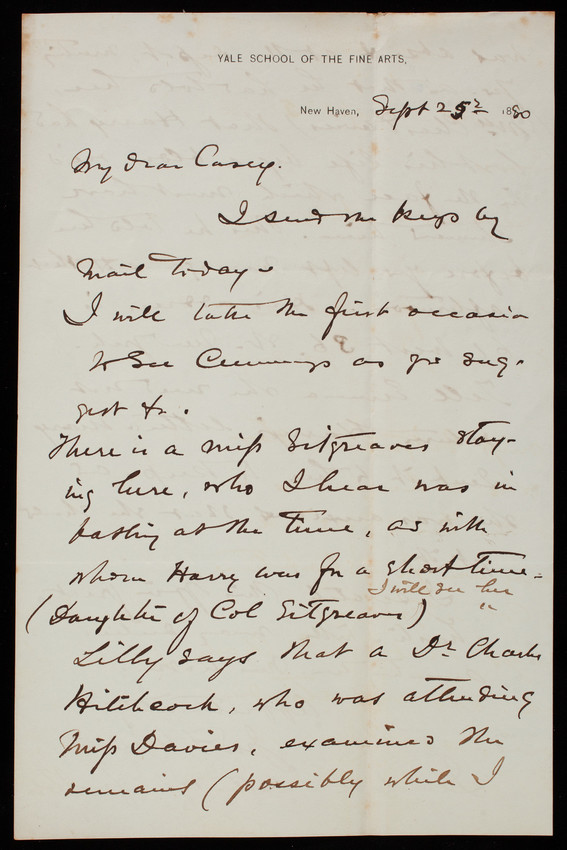 YALE SCHOOL OF THE FINE ARTS,
New Haven, Sept 25th 1880
My dear Casey.
I send the keys by
mail today.
I will take the first occasion
to see Cummings as you sug-
gest &c.
There is a Miss Sitgreaves stay-
ing here, who I hear was in
at the time, & with
whom Harry was for a short time.
I will see her
(Daughter of Col Sitgreaves)
Lilly says that a Dr Charles
Hitchcock, who was attending
Miss Davies, examined the
remains (possibly while I